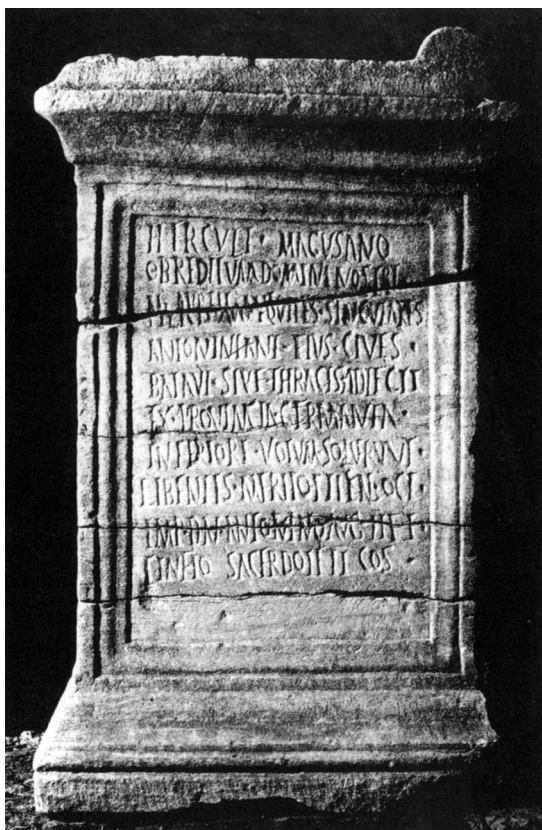 HERCVLI · MAGVSANO
OB REDITVM DOMINI NOSTRI
M AVR EQVITES · SINGVLARES
ANTONINIANI · EIVS · CIVES ·
BATAVI · SIVE · THRACES · ADLECTI
EX · PROVINCIA GERMANIA ·
INFERIORI · VOTVM · SOLVERVNT ·
LIBENTES · MERITO
IMP · D N · ANTONINO AVG III
SACERDOTE II COS ·